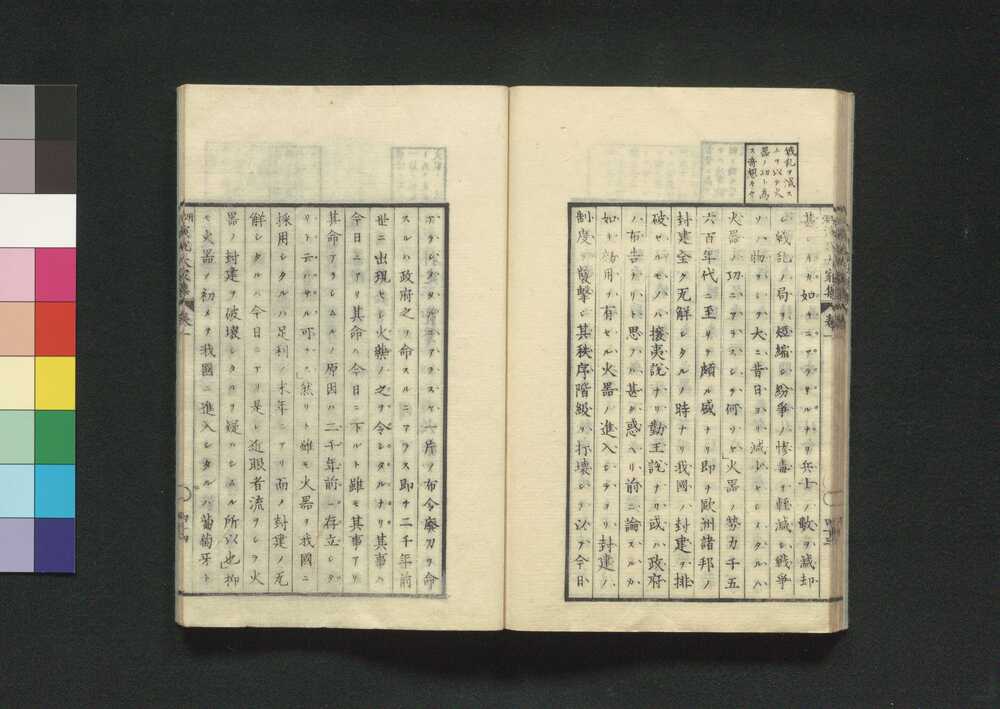 戦乱ヲ減ス
ルヲ以テ火
器ノ功ト為
ス奇想キヤ
甚シキカ如キニアラサルナリ兵士ノ敷ヲ減却
シ戦乱ノ局ヲ短縮シ紛爭ノ惨毒ヲ輕減シ戦爭
ソノ物ヲシテ大ニ昔日ヨリ減少セシメタルハ
火器ノ功ニアラスシテ何ソヤ」火器ノ勢力千五
六百年代ニ至リテ頗ル盛ナリ即チ歐洲諸邦ノ
封建全ク瓦解シタルノ時ナリ我國ノ封建ヲ排
破セルモノハ攘夷説ナリ勤王説ナリ或ハ政府
ノ布告ナリト思フハ甚タ惑ヘリ前ニ論スルカ
如キ効用ヲ有セル火器ノ進入シテ封建ノ
制度ヲ襲擊シ其秩序階級ヲ打壊シ以テ今日
四十三
一片ノ布令廢刀ヲ命
スルハ政府之ヲ命スルニアラス即チ二千年前
世ニ出現セシ火藥ノ之ヲ令シタルナリ其事ハ
今日ニアリ其命ハ今日ニ下ルト雖モ其事アリ
其命アラシムルノ原因ハ二千年前ニ存立シタ
リト云ハサル可ラス」然リト雖モ火器ヲ我國ニ
採用シタルハ足利ノ末年ニアリ而メ封建ノ瓦
解シタルハ今日ニアリ是レ近眼者流ヲシテ火
器ノ封建ヲ破壊シタルヲ疑ハシムル所以也」抑
モ火器ノ初メテ我國ニ進入シタルハ葡萄牙ト
卷一
四十四